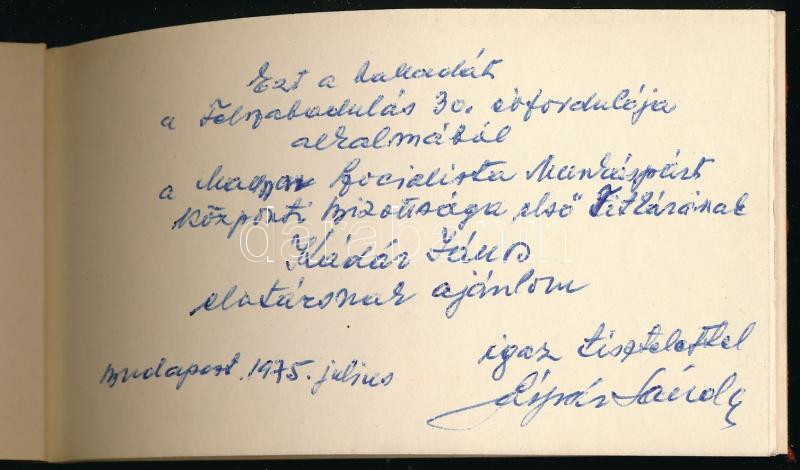 Ezt a balladát
a Felszabadulás 30. évfordulója
alkalmából
a Magyar Socialista Munkáspárt
Központi Bizottsága első Titkárának
Kádár János
elvtársnak ajánlom
igaz tisztelettel
Budapest. 1975. július
Sándor
darabanth.com